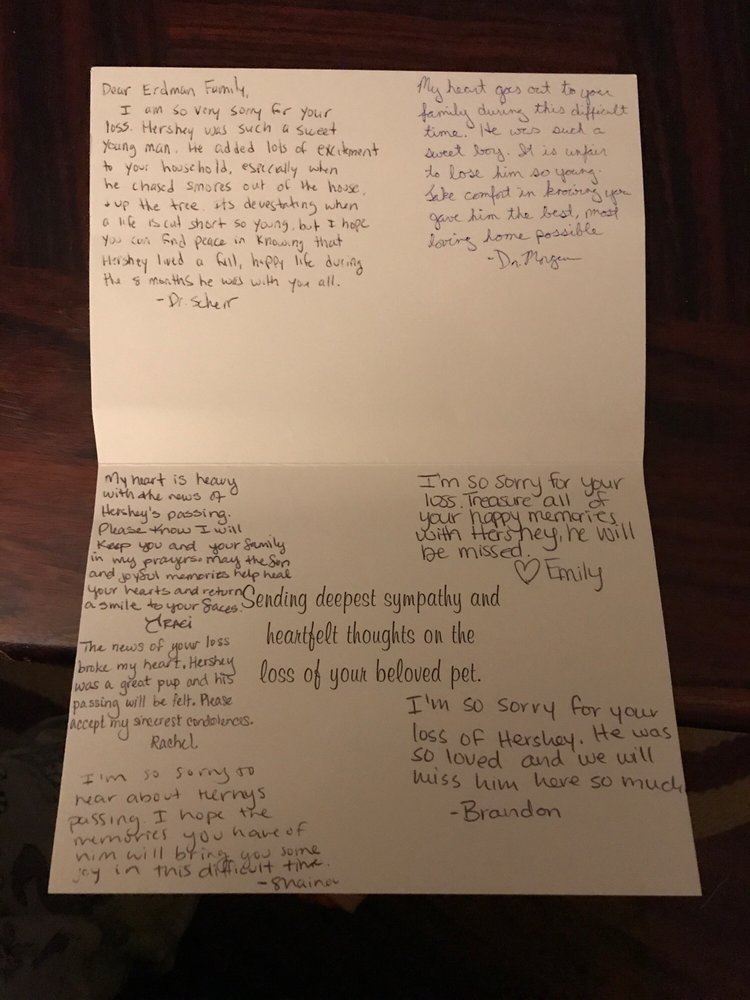 Dear Erdman Family,
I am so very sorry for your
loss. Hershey was such a sweet
young man. He added lots of excitement
to your household, esiccally when
he chased smores out of the house,
+ up the tree. its devestating when
a life is cut short so young, but I hope
you can find peace in knowing that
Hershey lived a full, happy life during
the 8 months he was with you all.
- Dr. Scherr
My heart goes out to your
family during this difficult
time. He was such a
sweet boy. It is unfair
to lose him so young.
Take comfort in knowing you
gave him the best, most
loving home possible
- Dr. Morgan
My heart is heavy
with the news of
Hershey's passing.
Please know I will
keep you and your family
in my prayers. May the fun
and joyful memories help heal
your hearts and return
a smile to your faces.
Traci
The news of your loss
broke my heart. Hershey
was a great pup and his
passing will be felt. Please
accept my sincerest condolences.
Rachel
I'm so sorry to
hear about Hershys
passing. I hope the
memories you have of
him will bring you some
joy in this difficult time.
- Shaina
I'm so sorry for your
loss. Treasure all of
your happy memories
with Hershey, he will
be missed.
♡ Emily
Sending deepest sympathy and
heartfelt thoughts on the
loss of your beloved pet.
I'm so sorry for your
loss of Hershey. He was
so loved and we will
miss him here so much
- Brandon